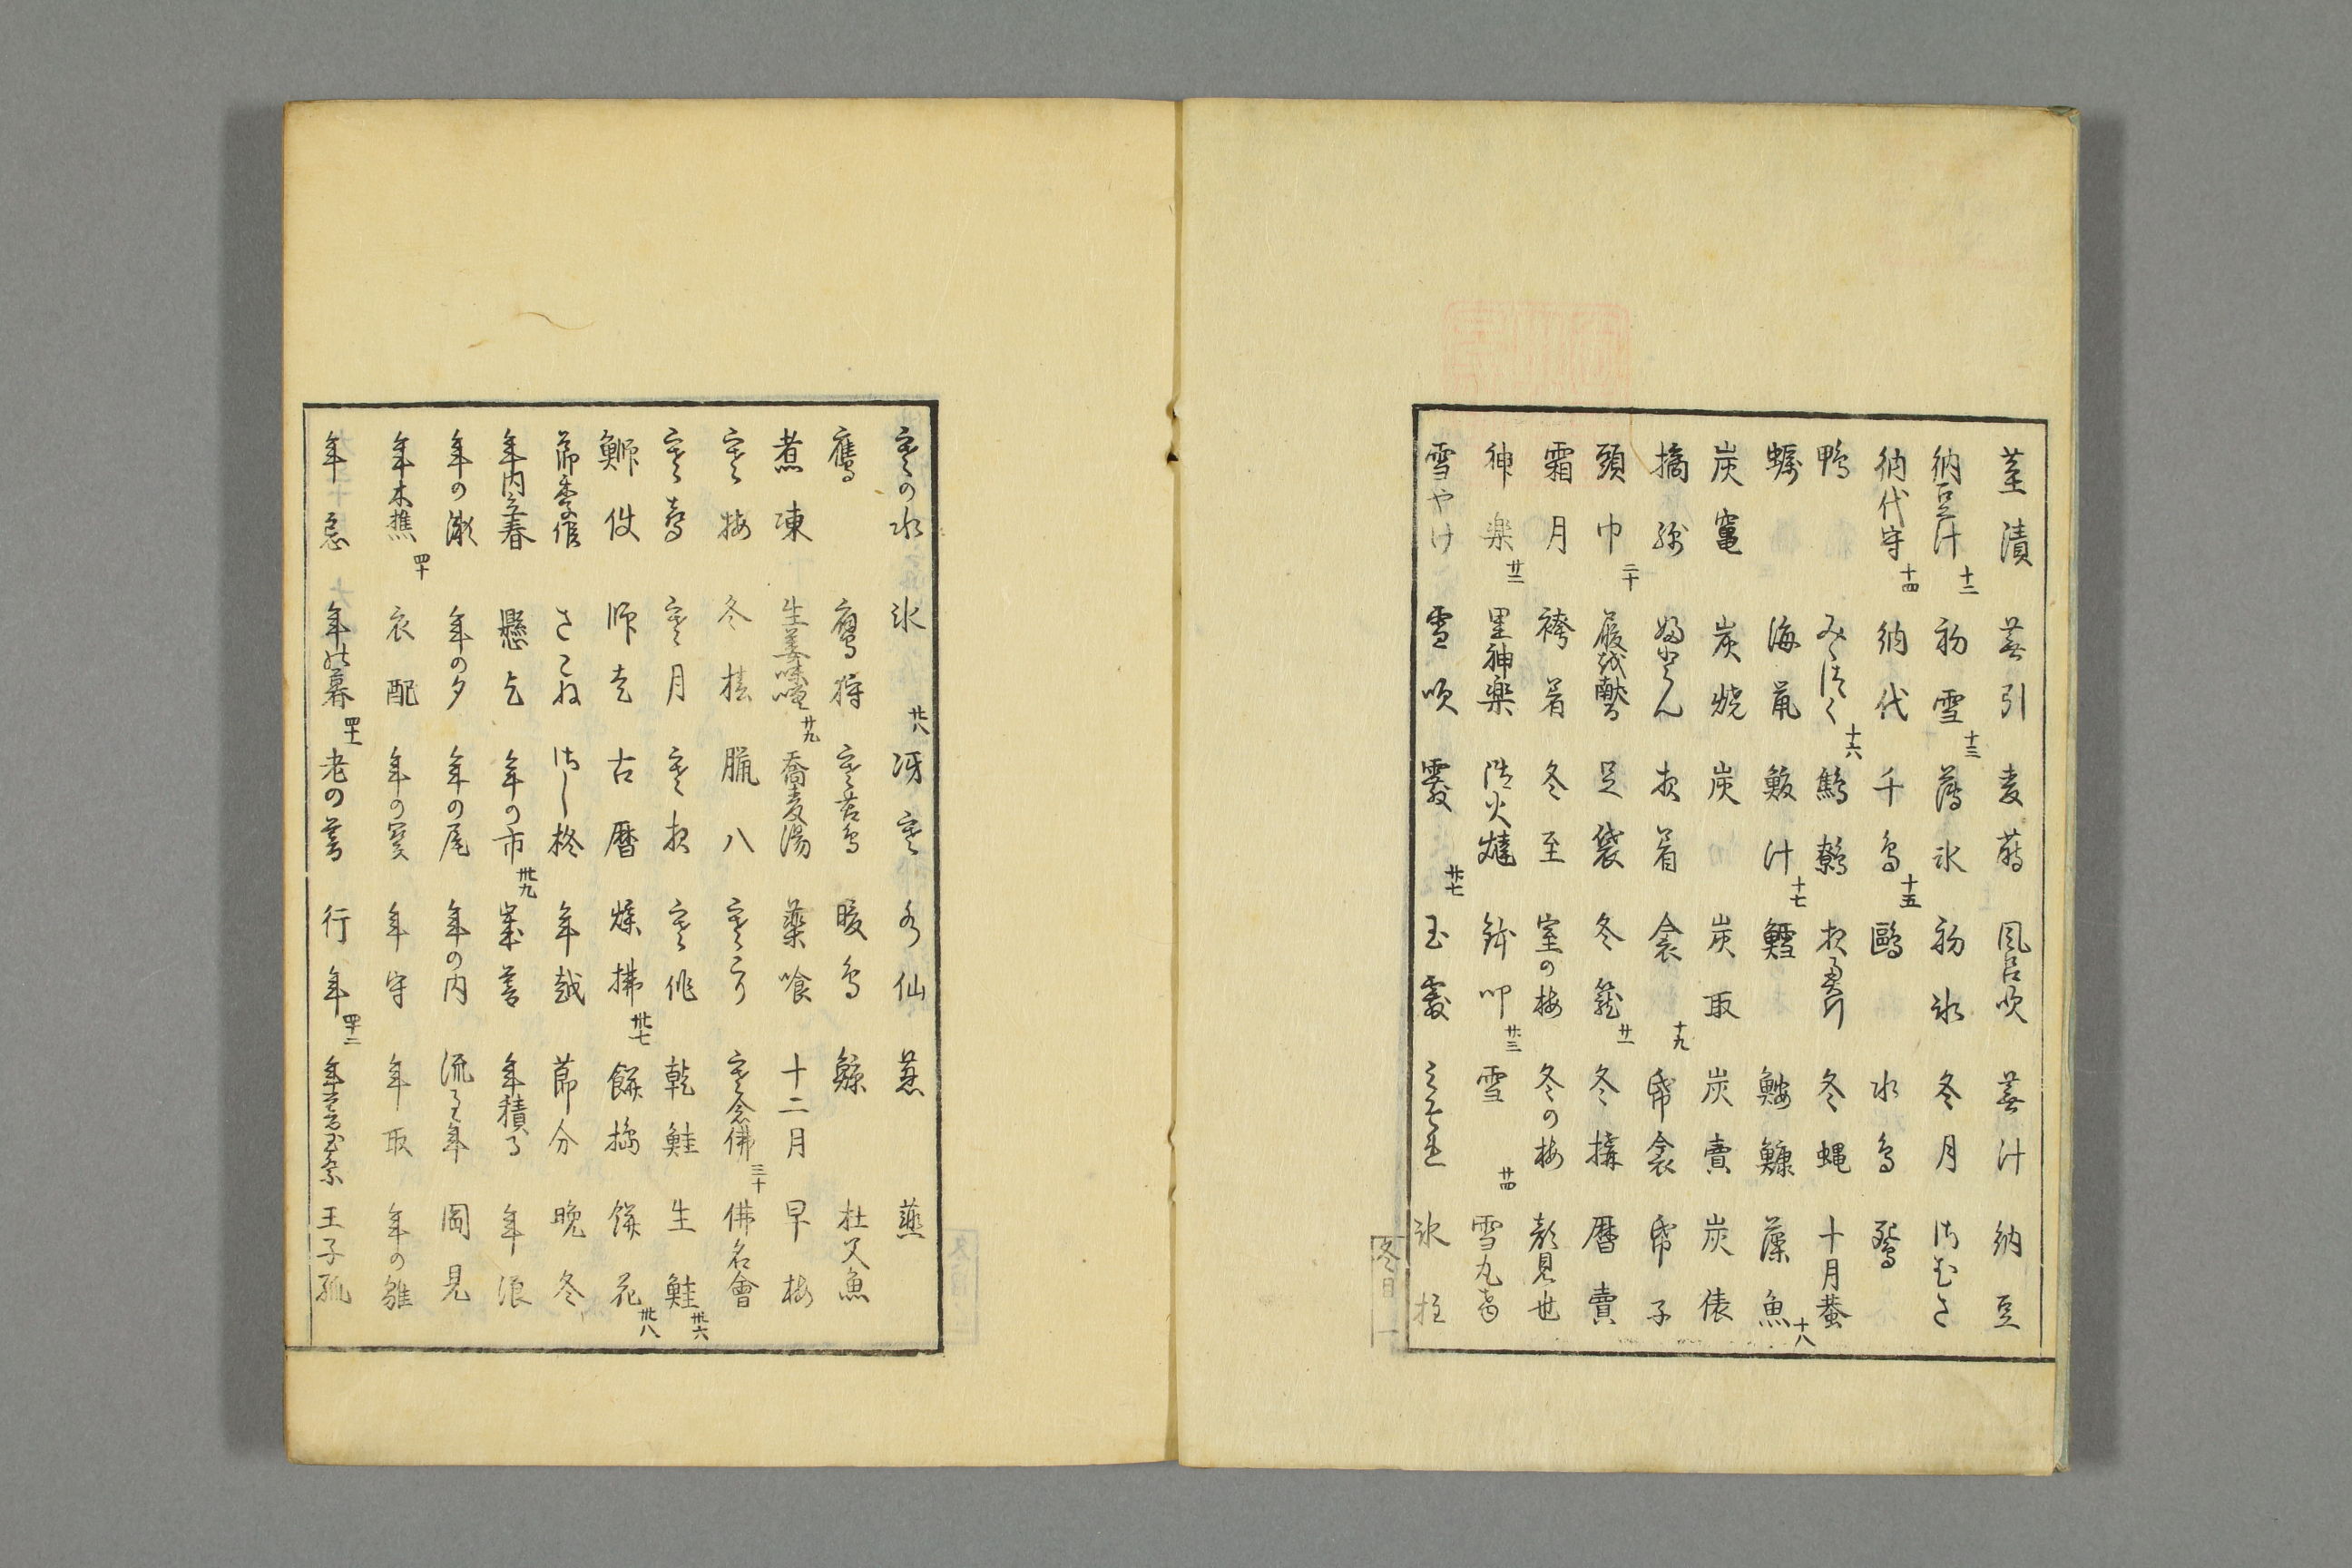 茎漬 蕪引 麦蒔 風呂吹 蕪汁 納豆
納豆汁 十二 初雪 十三 薄氷 初氷 冬月 さ
網代守 十四 網代 千鳥 十五 鴎 水鳥 鴛
鴨 みゝつく 十六 鷦鷯 夜興引 冬蝿 十月蚕
蠣 海鼠 鰒汁 十七 鱈 鮟鱇 藻魚 十八
炭竈 炭焼 炭 炭取 炭賣 炭俵
摘綿 ふとん 夜着 衾 十九 帋衾 帋子
頭巾 二十 足袋 冬籠 廿一 冬構 暦賣
霜月 袴着 冬至 室の梅 冬の梅 顔見世
神楽 廿二 里神楽 御火焼 鉢叩 廿三 雪 廿四 雪丸
雪やけ 雪吹 霰 廿七 玉霰 みそれ 氷柱
冬目 一
寒の水 氷 廿八 冴寒 水仙 葱
鷹 鷹狩 寒苦鳥 暖鳥 鯨 杜父魚
煮凍 生姜味噌 廿九 蕎麦湯 薬喰 十二月 早梅
寒梅 冬桜 臘八 寒こり 寒念佛 三十 佛名會
寒聲 寒月 寒夜 寒作 乾鮭 生鮭 卅六
鰤 師走 古暦 煤拂 卅七 餅搗 餅花 卅八
節季候 さこね 柊 年越 節分 晩冬
年内立春 懸乞 年の市 卅九 歳暮 年積る 年浪
年の瀬 年の夕 年の尾 年の内 流るゝ年 岡見
年木樵 四十 衣配 年の 年守 年取 年の雛
年忘 年の暮 四十一 老の暮 行年 四十二 王子狐